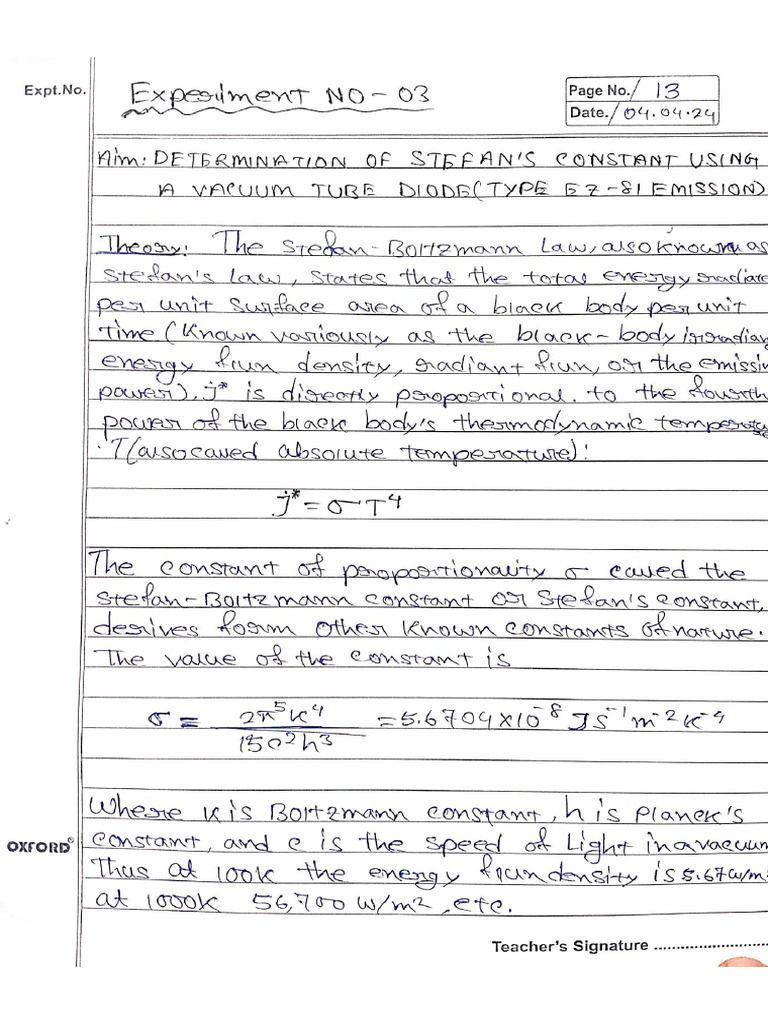 Expt.No.
Experiment NO-03
Page No. 13
Date. 04.04.24
Aim: DETERMINATION OF STEFAN'S CONSTANT USING
A VACUUM TUBE DIODE(TYPE EZ-81 EMISSION)
Theory: The Stefan-Boltzmann Law, also known as
Stefan's Law, states that the total energy radiate
per unit surface area of a black body per unit
time (known variously as the black-body irradian
energy flux density, radiant flux, or the emissiv
power), j* is directly propositional to the fourth
power of the black body's thermodynamic temperatu
T(also called absolute temperature):
j* = σT⁴
The constant of propositionality σ called the
Stefan-Boltzmann constant or Stefan's constant,
derives form other known constants of nature.
The value of the constant is
σ = 2π⁵k⁴ / 15c²h³ = 5.6704×10⁻⁸ JS⁻¹m⁻²K⁻⁴
Where k is Boltzmann constant, h is Planck's
OXFORD®
constant, and c is the speed of Light in a vacuum
Thus at 100K the energy flux density is 5.67 W/m²
at 1000K 56,700 W/m², etc.
Teacher's Signature